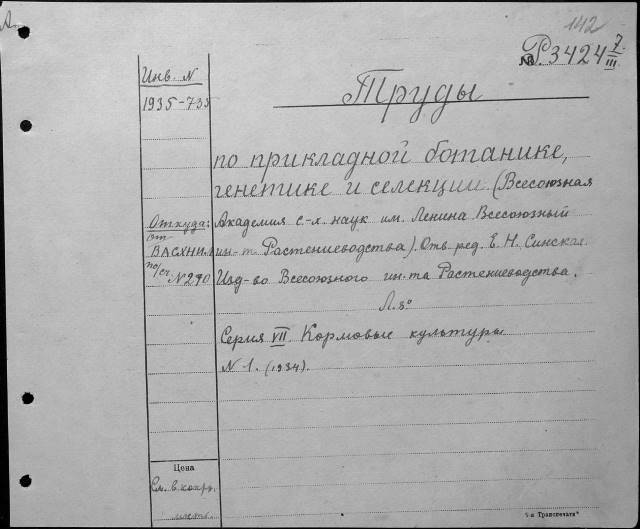 142
№ Р.3424 7/III.
Инв. N
1935-733
Труды
по прикладной ботанике,
генетике и селекции. (Всесоюзная
Откуда: Академия с-х. наук им. Ленина Всесоюзный
от
ВАСХНИЛ ин-т Растениеводства). Отв. ред. Е. Н. Синская.
по/сч. N 290 Изд-во Всесоюзного ин-та Растениеводства.
Л. 8°
Серия VII Кормовые культуры
N 1. (1934).
Цена
См. в копир.
"Транспечати"